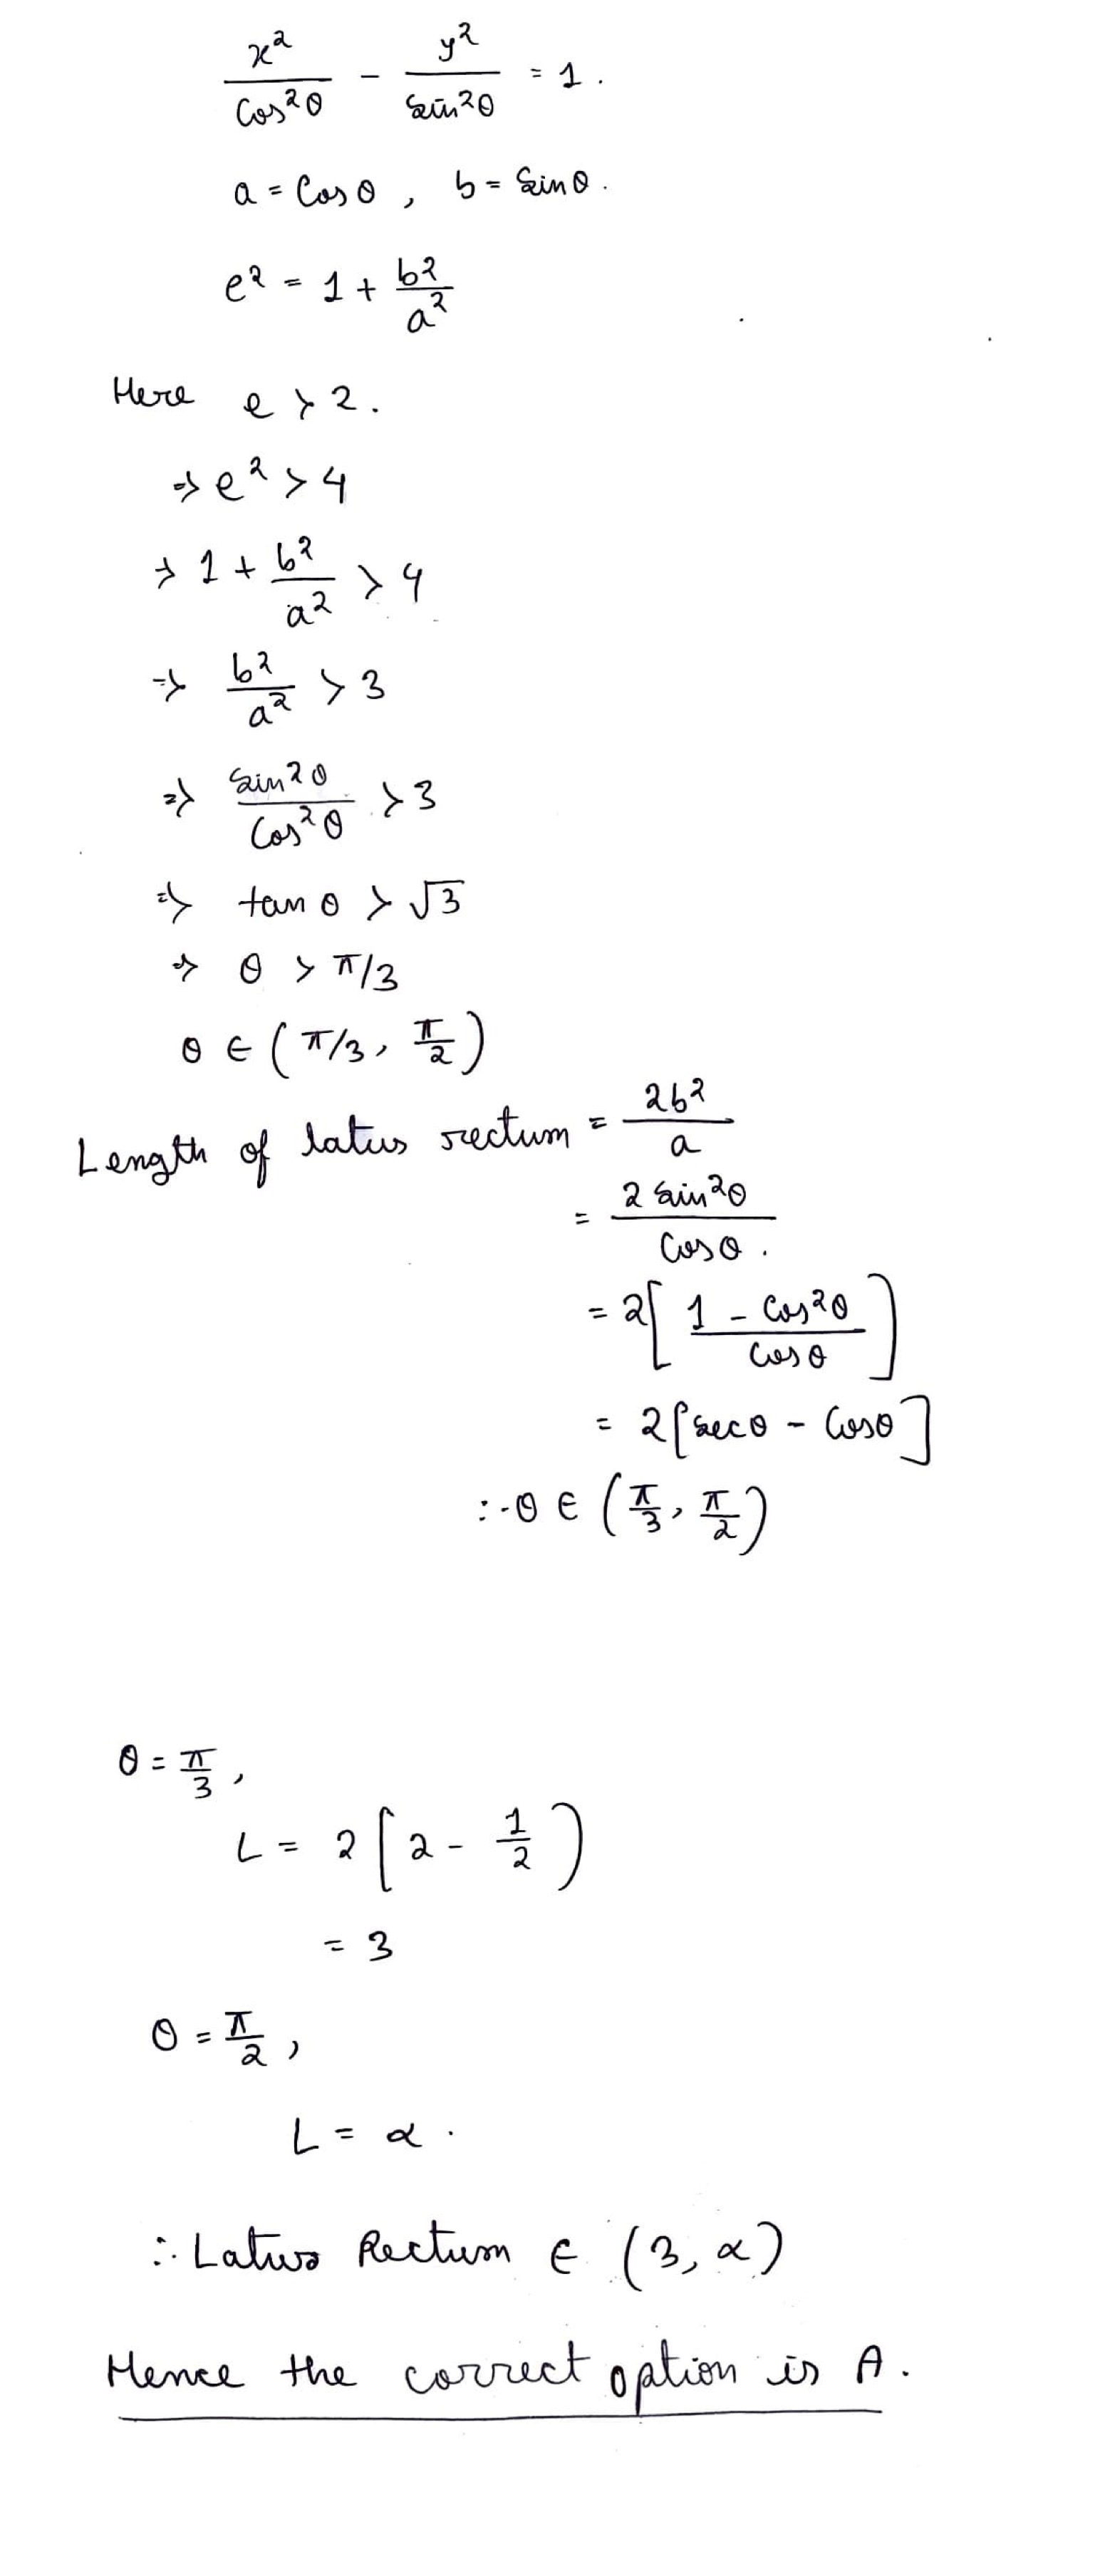 x²/Cos²θ - y²/Sin²θ = 1.
a = Cos θ, b = Sin θ.
e² = 1 + b²/a²
Here e > 2.
⇒ e² > 4
⇒ 1 + b²/a² > 4
⇒ b²/a² > 3
⇒ Sin²θ/Cos²θ > 3
⇒ tan θ > √3
⇒ θ > π/3
θ ∈ (π/3, π/2)
Length of latus rectum = 2b²/a
= 2 Sin²θ/Cos θ.
= 2[1 - Cos²θ/Cos θ]
= 2[Sec θ - Cos θ]
∵ θ ∈ (π/3, π/2)
θ = π/3,
L = 2[2 - 1/2)
= 3
θ = π/2,
L = ∝.
∴ Latus Rectum ∈ (3, ∝)
Hence the correct option is A.